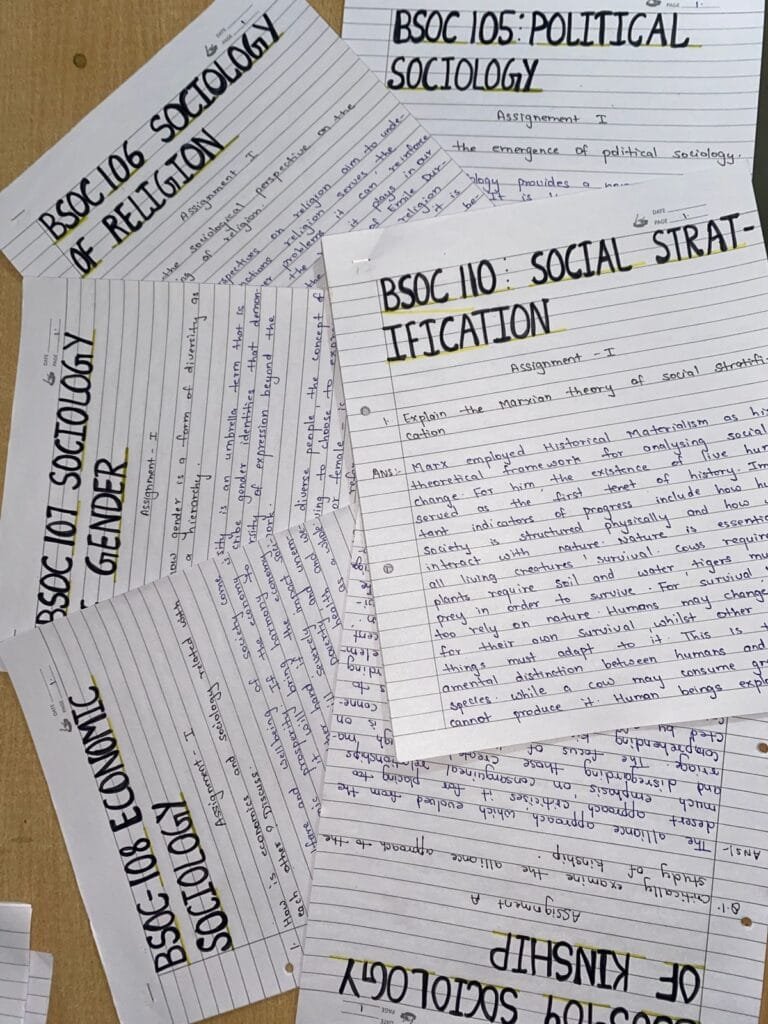 BSOC 106 SOCIOLOGY
OF RELIGION
Assignment I
the sociological perspective on the
of religion.
religion aim to unde-
religion serves the
problems it can reinforce
it plays in our
of Emile Dur-
religion
it is
be-
PAGE 1.
BSOC 105: POLITICAL
SOCIOLOGY
Assignement I
the emergence of political sociology.
provides a
It is
DATE
PAGE 1.
BSOC 110: SOCIAL STRAT-
IFICATION
Assignment - I
1. Explain the Marxian theory of social stratifi-
cation
Ans:- Marx employed Historical Materialism as his
theoretical framework for analysing social
change. For him the existence of live hum
served as the first tenet of history. Im
tant indicators of progress include how hu
society is structured physically and how
interact with nature. Nature is essentia
all living creatures' survival. Cows require
plants require soil and water tigers mu
prey in order to survive. For survival
too rely on nature. Humans may change
for their own survival whilst other
things must adapt to it. This is t
amental distinction between humans and
species. while a cow may consume gra
cannot produce it. Human beings explo
DATE
PAGE 1.
BSOC 107 SOCIOLOGY
GENDER
Assignment - I
how gender is a form of diversity as
a hierarchy.
is an umbrella term that is
gender identities that demon-
of expression beyond the
diverse people the concept of
to choose to
or female
DATE
PAGE 1.
BSOC-108 ECONOMIC
SOCIOLOGY
Assignment - I
1. How is economics and sociology related with
each other? Discuss.
and wellbeing of society come
prosperity. If the economy is
it will bring harmony
hand if the economy
severely impact
Poverty and
health
DATE
PAGE 1.
SOCIOLOGY
OF KINSHIP
Assignment A
Q.1. Critically examine the alliance approach to the
study of kinship.
Ans:- The alliance approach which evolved from the
desert approach criticises it for placing too
much emphasis on consanguineal relationships
and disregarding those
The focus of
comprehending